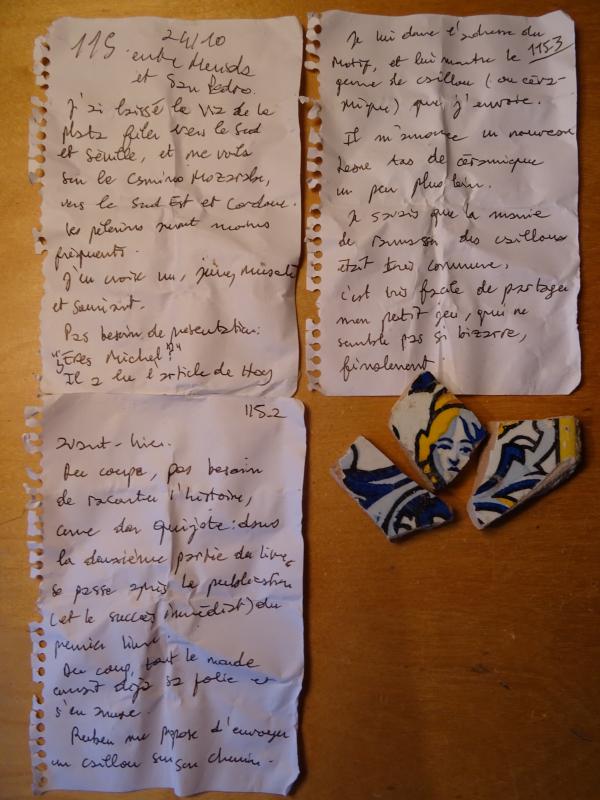 115. 24/10
entre Merida
et San Pedro.
J'ai laissé la Via de la
plata filer vers le Sud
et Séville, et me voilà
sur le Camino Mozarabe,
vers le Sud Est et Cordoue.
Les pèlerins seront moins
fréquents.
J'en croise un, jeune, musclé
et souriant.
Pas besoin de présentation:
"¿Eres Michel?"
Il a lu l'article de Hoy
115-2
avant-hier.
Du coup, pas besoin
de raconter l'histoire,
comme don quijote: dans
la deuxième partie du livre
se passe après la publication
(et le succès immédiat) du
premier livre.
Du coup, tout le monde
connait déjà sa folie et
s'en amuse.
Ruben me propose d'envoyer
un caillou sur son chemin.
115-3
Je lui donne l'adresse du
Motif, et lui montre le
genre de caillou (ou céra-
mique) que j'envoie.
Il m'annonce un nouveau
tas de céramique
un peu plus loin.
Je savais que la manie
de ramasser des cailloux
était très commune,
c'est très facile de partager
mon petit jeu, qui ne
semble pas si bizarre,
finalement.